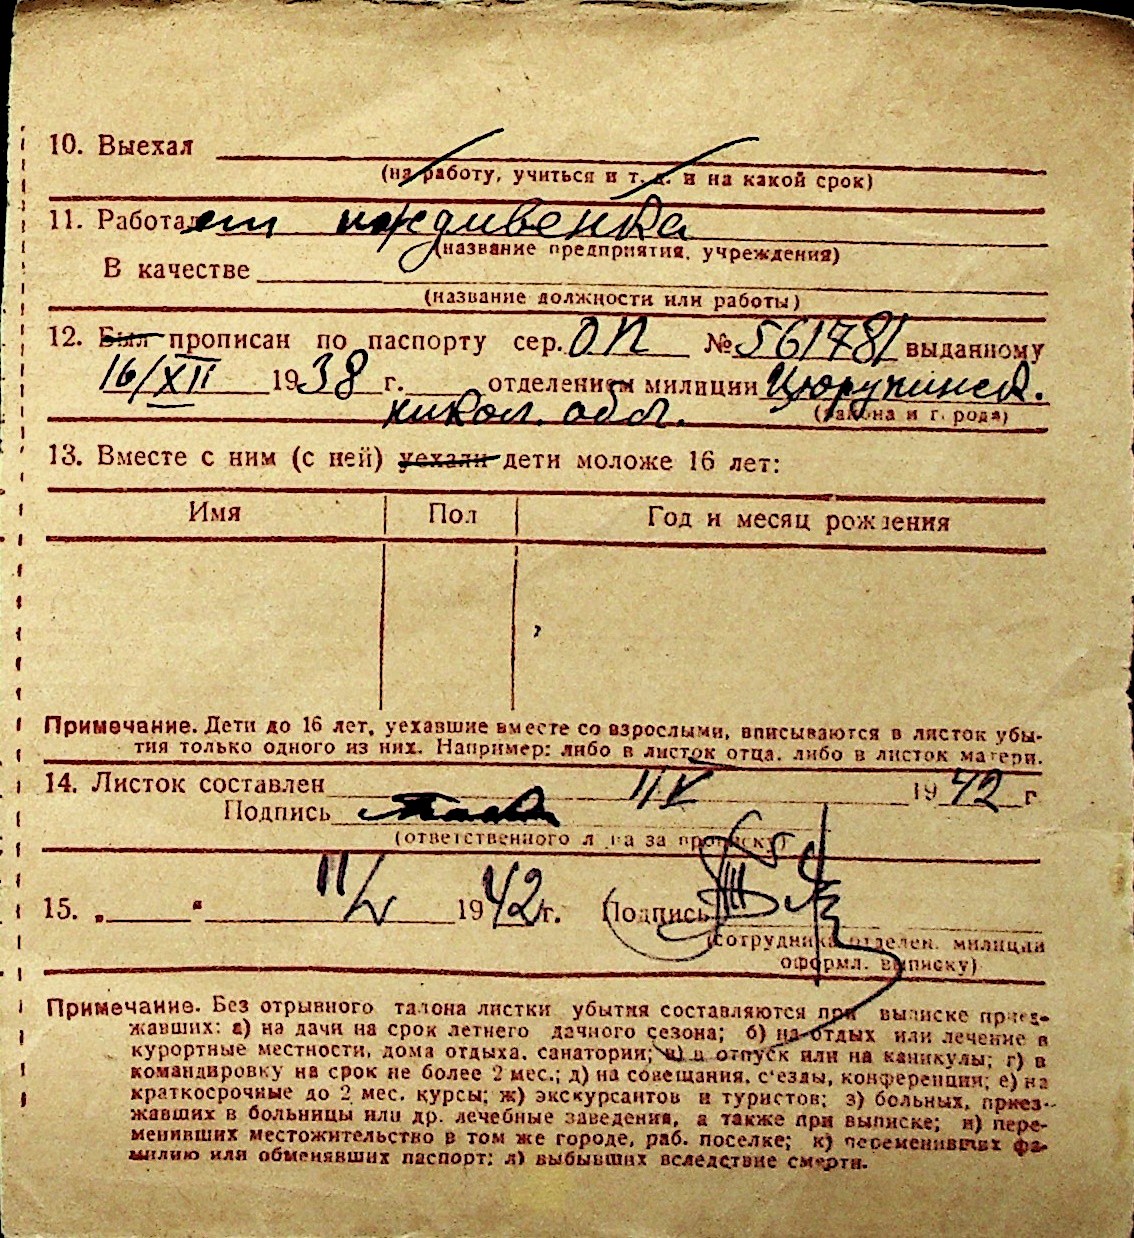 10. Выехал
(на работу, учиться и т. д. и на какой срок)
11. Работает иждивенка
(название предприятия, учреждения)
В качестве
(название должности или работы)
12. Был прописан по паспорту сер. ОП № 561781 выданному
16/XII 1938 г. отделением милиции Цюрупинск.
никол. обл.
(района и города)
13. Вместе с ним (с ней) уехали дети моложе 16 лет:
Имя Пол Год и месяц рождения
Примечание. Дети до 16 лет, уехавшие вместе со взрослыми, вписываются в листок убы-
тия только одного из них. Например: либо в листок отца, либо в листок матери.
14. Листок составлен 11/V 1942 г
Подпись
(ответственного лица за прописку)
15. „ “ 11/V 1942 г. (Подпись)
(сотрудника отделен. милиции
оформл. выписку)
Примечание. Без отрывного талона листки убытия составляются при выписке приез-
жавших: а) на дачи на срок летнего дачного сезона; б) на отдых или лечение в
курортные местности, дома отдыха, санатории; в) в отпуск или на каникулы; г) в
командировку на срок не более 2 мес.; д) на совещания, съезды, конференции; е) на
краткосрочные до 2 мес. курсы; ж) экскурсантов и туристов; з) больных, приез-
жавших в больницы или др. лечебные заведения, а также при выписке; и) пере-
менивших местожительство в том же городе, раб. поселке; к) переменивших фа-
милию или обменявших паспорт; л) выбывших вследствие смерти.